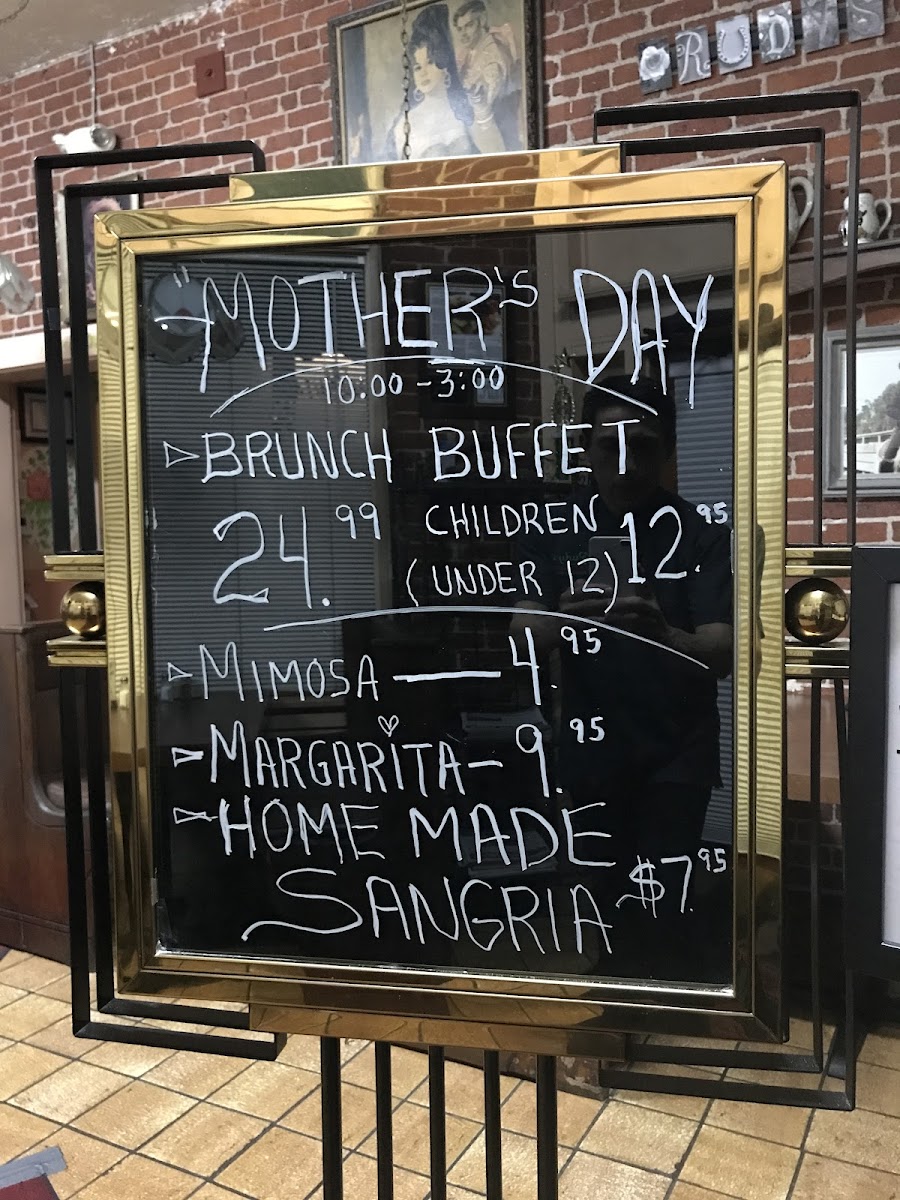 RUDYS
"MOTHER'S DAY
10:00 - 3:00
BRUNCH BUFFET
24.99 CHILDREN (UNDER 12) 12.95
MIMOSA — 4.95
MARGARITA — 9.95
HOME MADE
SANGRIA $7.95